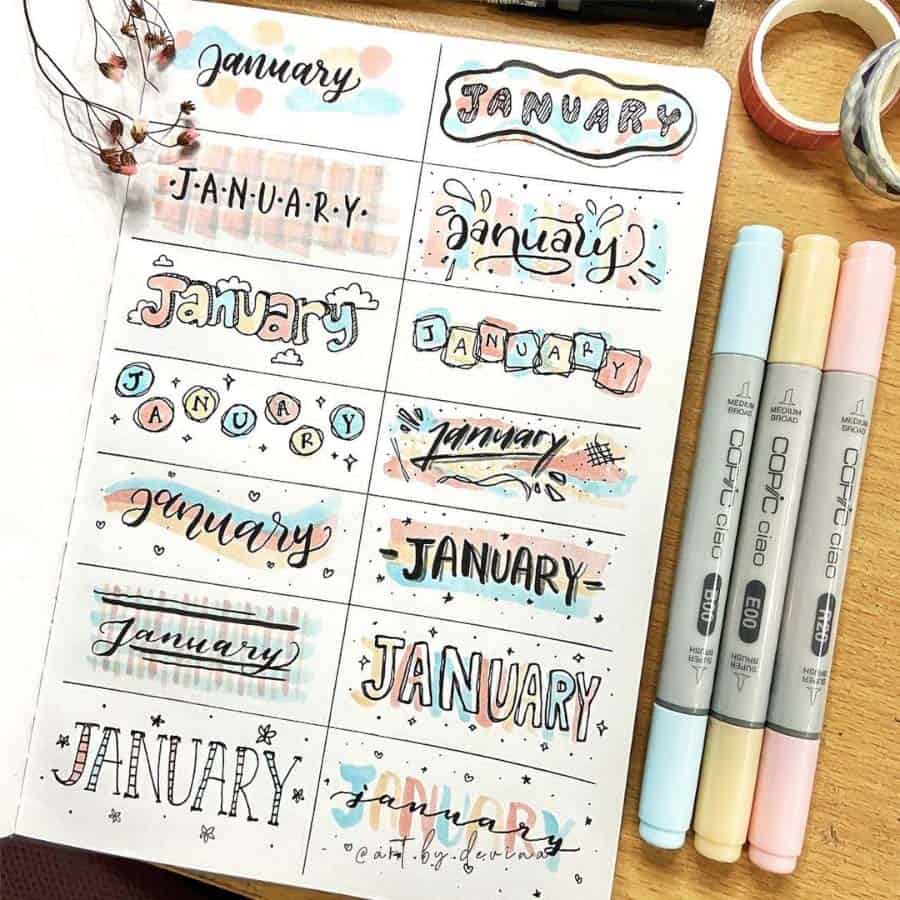 january
JANUARY
·J·A·N·U·A·R·Y·
january
January
JANUARY
JANUARY
january
january
-JANUARY-
January
JANUARY
JANUARY
JANUARY
january
@art.by.devina
1
MEDIUM
BROAD
COPIC ciao
B00
SUPER
BRUSH
1
MEDIUM
BROAD
COPIC ciao
E00
SUPER
BRUSH
1
MEDIUM
BROAD
COPIC ciao
R20
SUPER
BRUSH